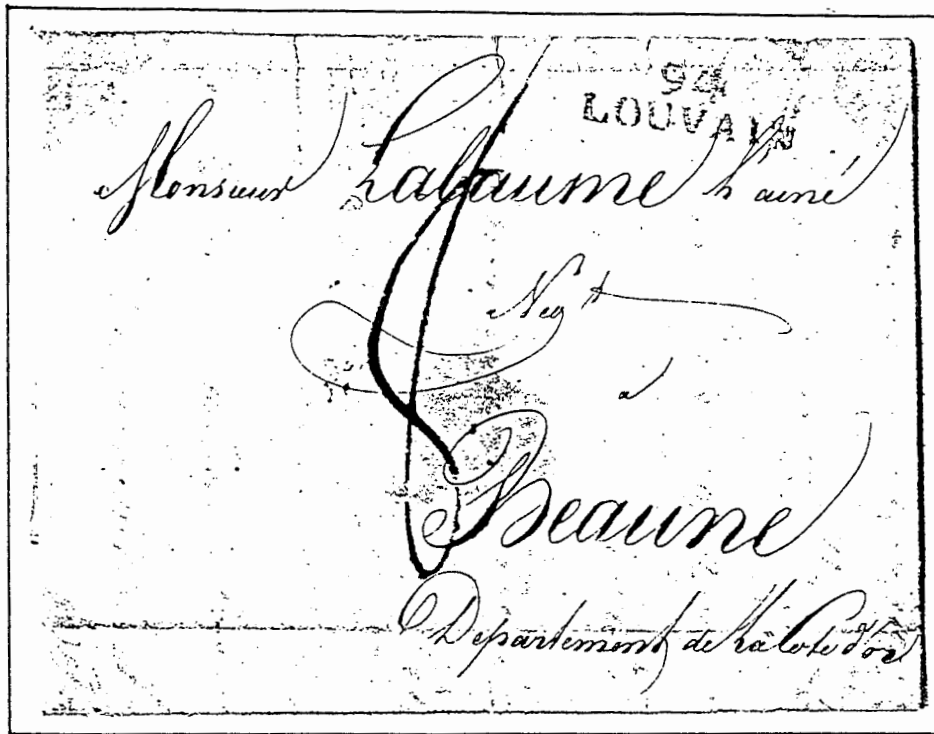 94
LOUVAIN
Monsieur Labaume L'ainé
Negt
a
Beaune
Departement de La Cote d'or
8